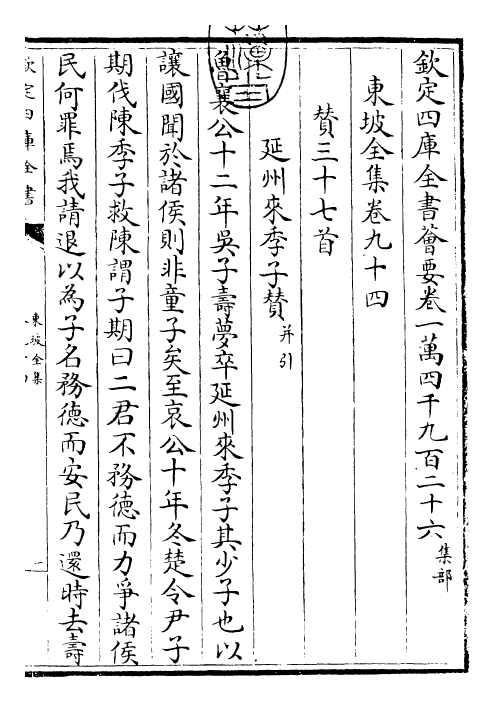 欽定四庫全書薈要卷一萬四千九百二十六集部
東坡全集卷九十四
贊三十七首
延州來季子贊并引
魯襄公十二年吳子壽夢卒延州來季子其少子也以
讓國聞於諸侯則非童子矣至哀公十年冬楚令尹子
期伐陳季子救陳謂子期曰二君不務德而力爭諸侯
民何罪焉我請退以為子名務德而安民乃還時去壽
欽定四庫全書
東坡全集
一